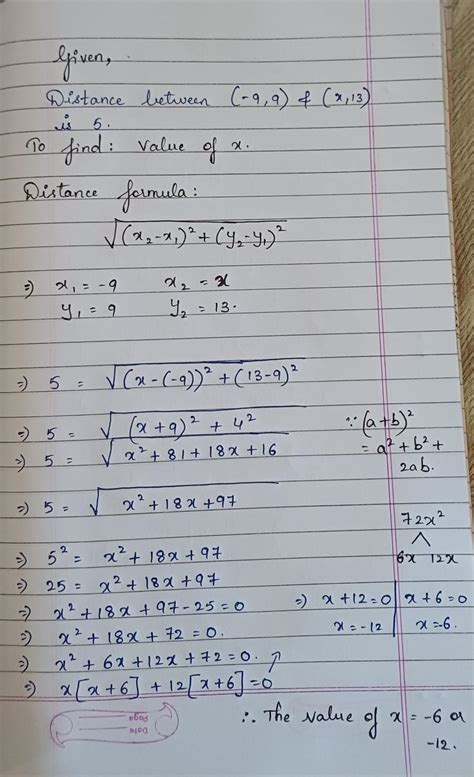 Given,
Distance between (-9,9) & (x,13)
is 5.
To find: Value of x.
Distance formula:
√(x₂-x₁)² + (y₂-y₁)²
⇒) x₁ = -9    x₂ = x
y₁ = 9    y₂ = 13.
⇒) 5 = √(x-(-9))² + (13-9)²
⇒) 5 = √(x+9)² + 4²    ∵ (a+b)²
⇒) 5 = √x² + 81 + 18x + 16    = a² + b² +
2ab.
⇒) 5 = √x² + 18x + 97
72x²
⇒) 5² = x² + 18x + 97    6x 12x
⇒) 25 = x² + 18x + 97
⇒) x² + 18x + 97 - 25 = 0    ⇒) x + 12 = 0 | x + 6 = 0
⇒) x² + 18x + 72 = 0.    x = -12 | x = -6.
⇒) x² + 6x + 12x + 72 = 0.
⇒) x[x+6] + 12[x+6] = 0
∴ The value of x = -6 or
-12.
Date
Page